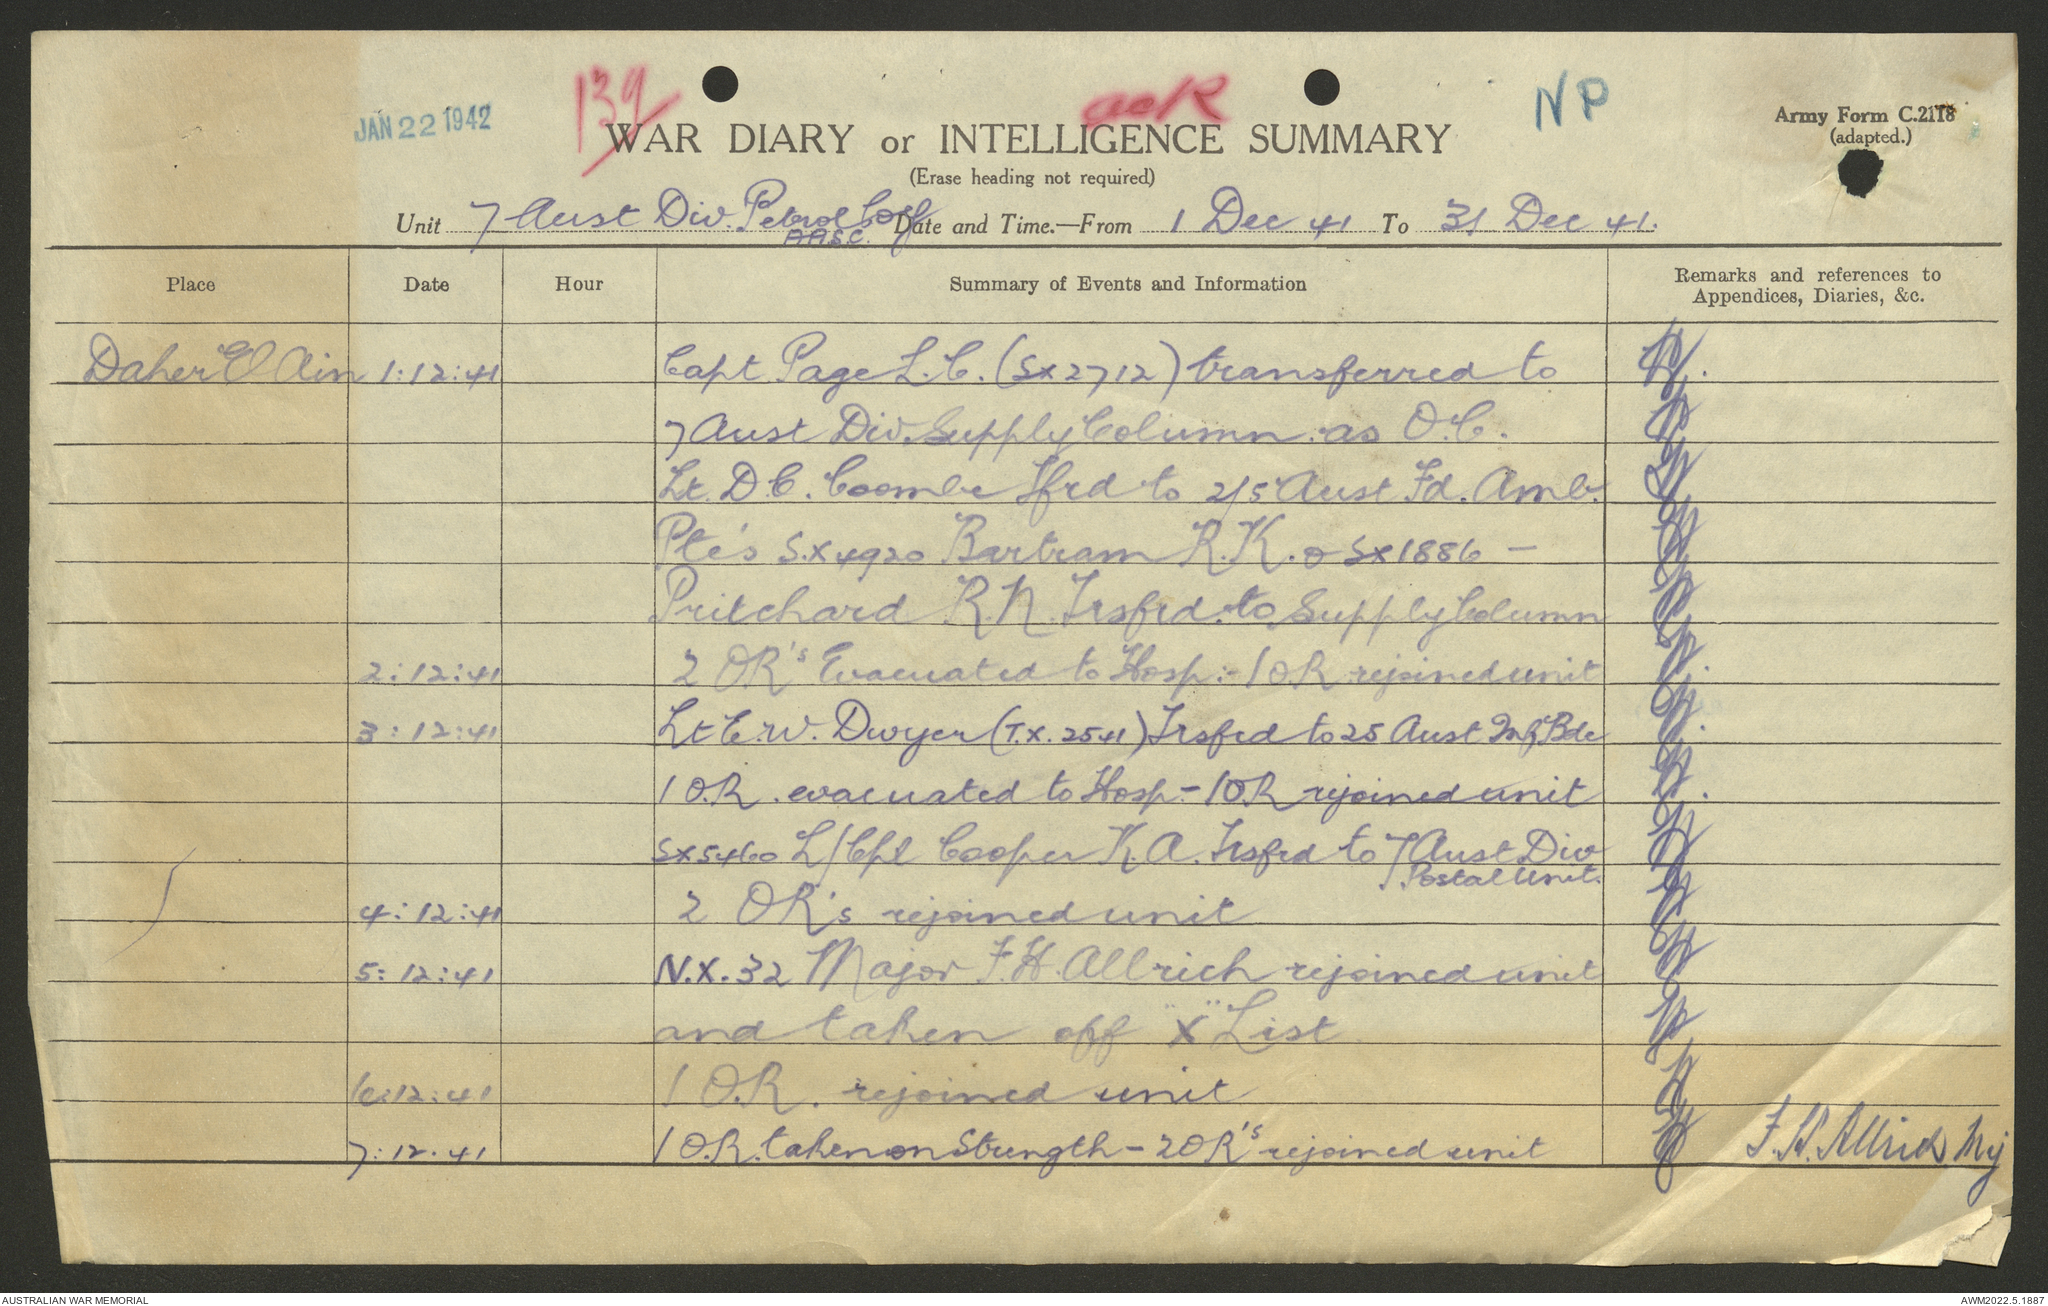 JAN 22 1942
139
ack
NP
Army Form C.2118
(adapted.)
WAR DIARY or INTELLIGENCE SUMMARY
(Erase heading not required)
Unit 7 Aust Div. Petrol Coy Date and Time.—From 1 Dec 41 To 31 Dec 41.
AASC.
Place Date Hour Summary of Events and Information Remarks and references to
Appendices, Diaries, &c.
Daher El Ain 1:12:41 Capt Page L.C. (SX2712) transferred to
7 Aust Div. Supply Column as O.C.
Lt. D.C. Coombe tfrd to 2/5 Aust Fd. Amb.
Pte's S.X4920 Bartram R.K. & SX1886 —
Pritchard R.N. Trsfrd. to Supply Column
2:12:41 2 OR's Evacuated to Hosp:- 1 OR rejoined unit
3:12:41 Lt E.W. Dwyer (T.X. 2541) Trsfrd to 25 Aust Inf Bde
1 O.R. evacuated to Hosp- 1 OR rejoined unit
SX5460 L/Cpl Cooper K.A. Trsfrd to 7 Aust Div
Postal Unit.
4:12:41 2 OR's rejoined unit
5:12:41 N.X.32 Major F.H. Allrich rejoined unit
and taken off "X" List
6:12:41 1 O.R. rejoined unit
7:12.41 1 O.R. taken on Strength - 2 OR's rejoined unit F.H. Allrich Mj
AUSTRALIAN WAR MEMORIAL
AWM2022.5.1887